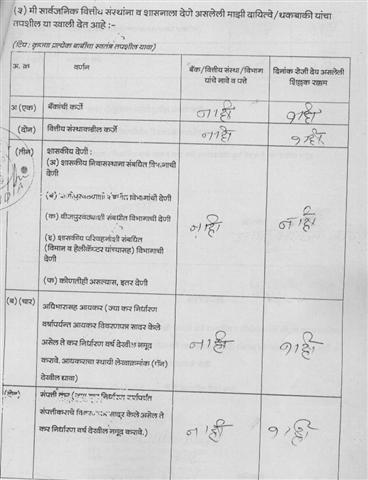 (२) मी सार्वजनिक वित्तीय संस्थांना व शासनाला देणे असलेली माझी दायित्वे/थकबाकी यांचा
तपशील या खाली देत आहे :-
(टिप: कृपया प्रत्येक बाबींचा स्वतंत्र तपशील द्यावा)
अ. क्र वर्णन बँक/वित्तीय संस्था/विभाग यांचे नावे व पत्ते दिनांक रोजी देय असलेली शिल्लक रक्कम
अ (एक) बँकांची कर्जे नाही नाही
(दोन) वित्तीय संस्थाकडील कर्जे नाही नाही
(तीन) शासकीय देणी :
(अ) शासकीय निवासस्थाना संबधित विभागाची
देणी
(ब) विभागांची देणी
(क) वीजपुरवठ्याशी संबधीत विभागाची देणी नाही नाही
(इ) शासकीय परिवहनाशी संबधित
(विमान व हेलीकॅप्टर यांच्यासह) विभागाची
देणी
(फ) कोणतीही असल्यास, इतर देणी
(ब) (चार) अधिभारासह आयकर (ज्या कर निर्धारण
वर्षापर्यन्त आयकर विवरणपत्र सादर केले
असेल ते कर निर्धारण वर्ष देखील नमूद नाही नाही
करावे. आयकराचा स्थायी लेखाक्रमांक (पॅन)
देखील द्यावा)
संपत्ती कर निर्धारण वर्षापर्यंत
संपत्तीकराचे सादूर केले असेल ते
कर निर्धारण वर्ष देखील नमूद करावे.) नाही नाही